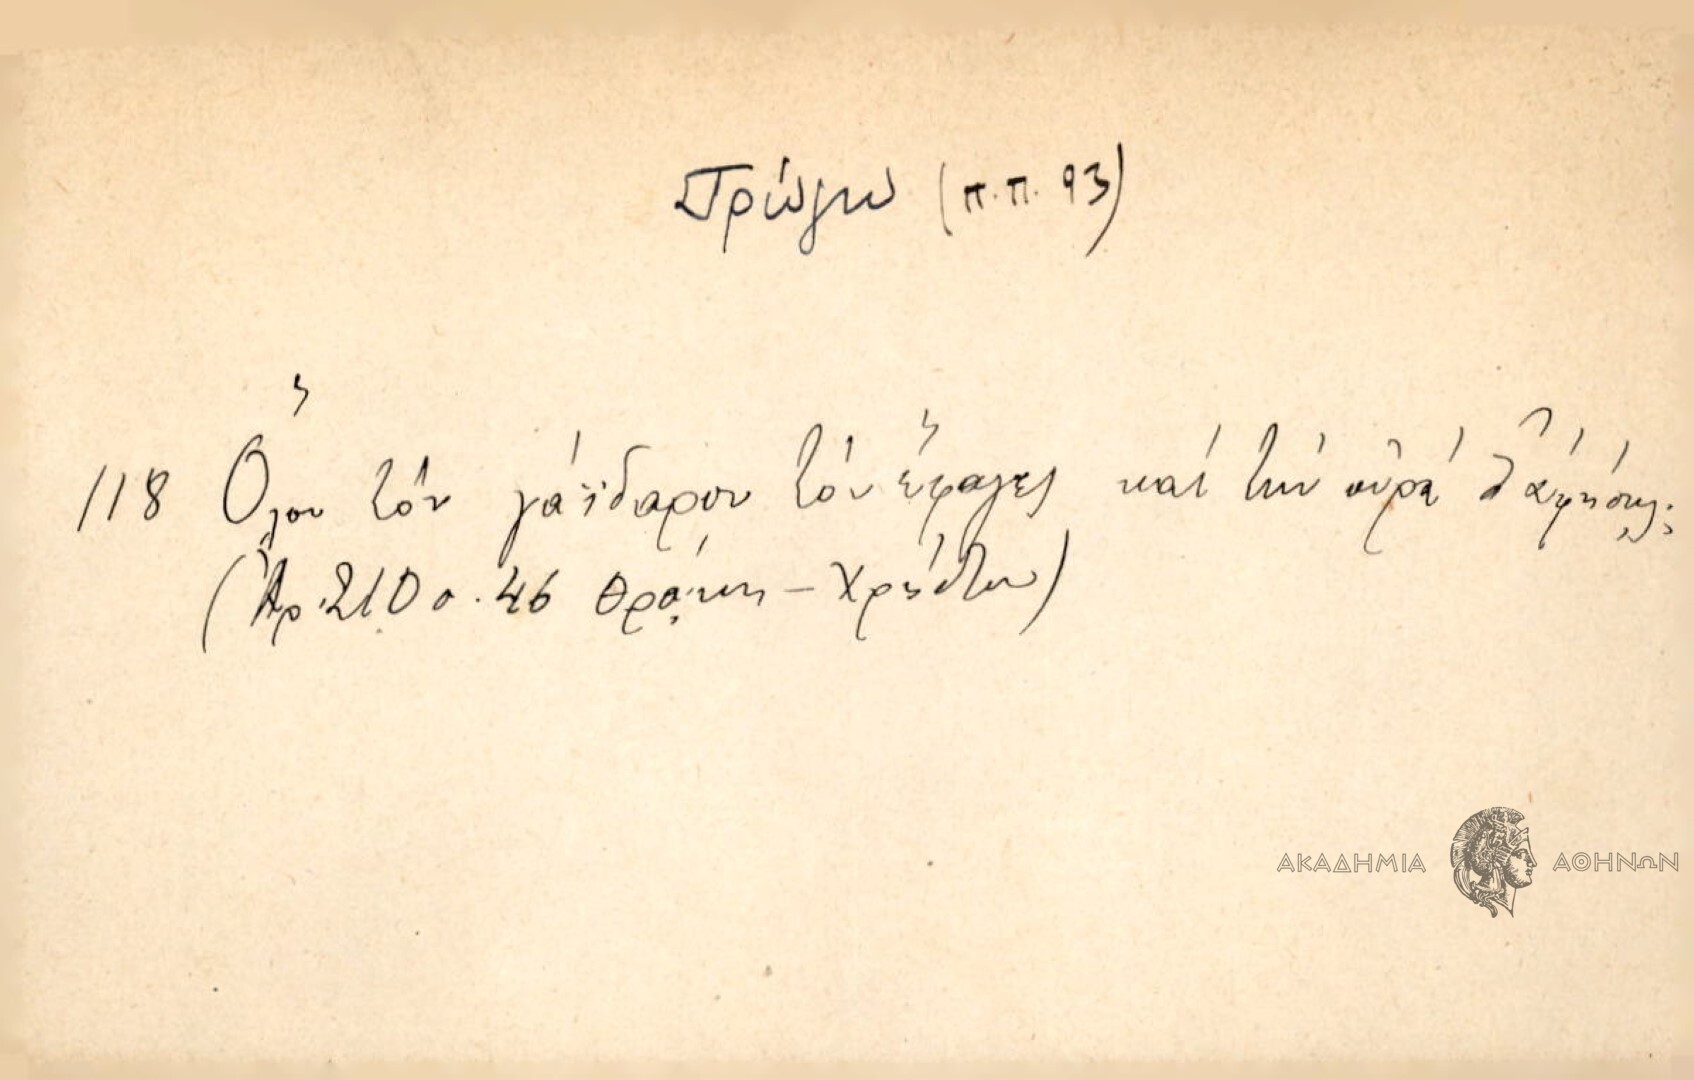 Τρώγω (π.π. 93)
118 Ὅλον τὸν γάϊδαρον τὸν ἔφαγες καὶ τὴν οὐρὰ θ' ἀφήσῃς;
(Ἀρ. 210 σ. 46 Θρᾴκη - Χρήστου)
ΑΚΑΔΗΜΙΑ ΑΘΗΝΩΝ